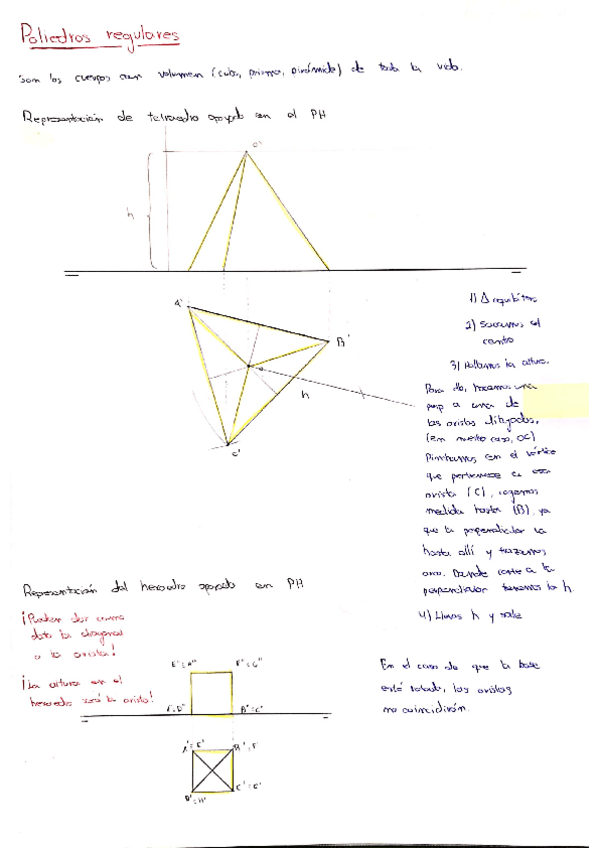 Poliedros regulares
Son los cuerpos con volumen (cubo, prisma, pirámide) de toda la vida.
Representación de tetraedro apoyado en el PH
O''
h
A'
B'
h
C'
1) Δ equilátero
2) Sacamos el
centro
3) Hallamos la altura.
Para ello, hacemos una
perp a una de
las aristas dibujadas,
(en nuestro caso, OC)
Pinchamos en el vértice
que pertenece a esa
arista (C), cogemos
medida hasta (B), ya
que la perpendicular va
hasta allí y trazamos
arco. Donde corte a la
perpendicular tenemos la h.
4) Llevas h y sale
Representación del hexaedro apoyado en PH
¡Pueden dar como
dato la diagonal
o la arista!
¡La altura en el
hexaedro será la arista!
E''≡A'' F''≡G''
B''≡C''
A'≡E' B'≡F'
C'≡G'
D'≡H'
En el caso de que la base
esté rotada, las aristas
no coincidirán.